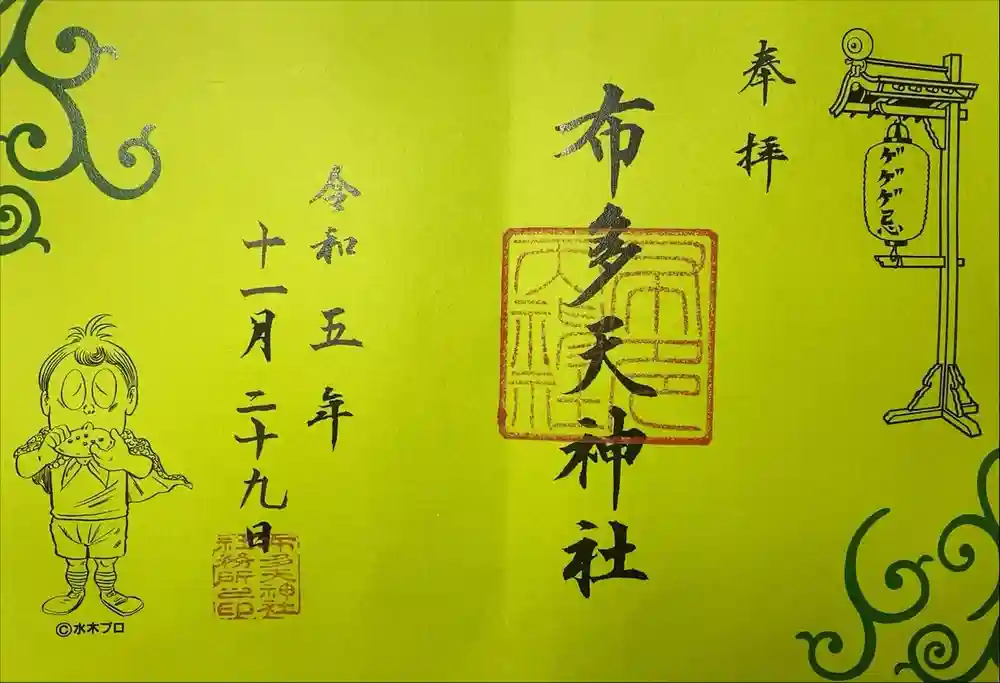 奉拝
ゲゲゲ忌
布多天神社
令和五年
十一月二十九日
布多天神社
社務所之印
©水木プロ